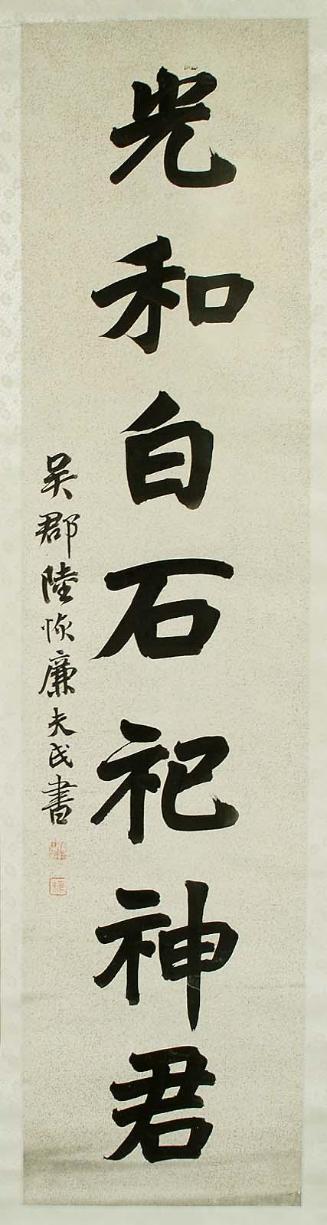 光和白石祀神君
吳郡陸恢廉夫氏書